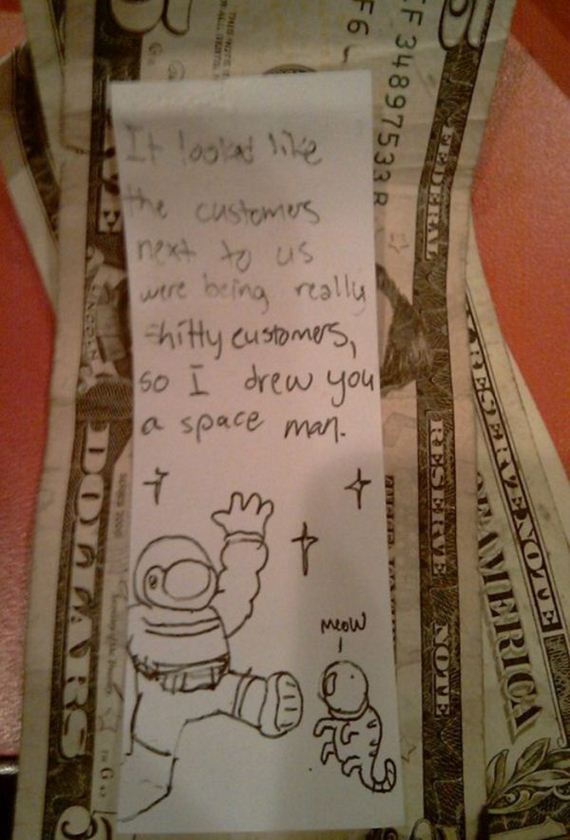 It looked like
the customers
next to us
were being really
shitty customers,
so I drew you
a space man.
meow
F6
CF34897533B
FEDERAL
RESERVE
NOTE
DOLLARS
RESERVE NOTE
OF AMERICA
5